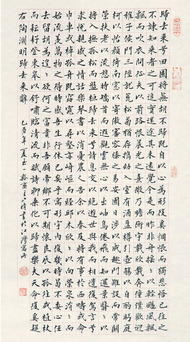 歸去來兮田園將蕪胡不歸既自以心為形役奚惆悵而獨悲悟已往之
不諫知來者之可追實迷途其未遠覺今是而昨非舟遙遙以輕颺風飄
飄而吹衣問征夫以前路恨晨光之熹微乃瞻衡宇載欣載奔僮僕歡迎
稚子候門三徑就荒松菊猶存攜幼入室有酒盈樽引壺觴以自酌眄庭
柯以怡顏倚南窗以寄傲審容膝之易安園日涉以成趣門雖設而常關
策扶老以流憩時矯首而遐觀雲無心以出岫鳥倦飛而知還景翳翳以
將入撫孤松而盤桓歸去來兮請息交以絕遊世與我而相違復駕言兮
焉求悅親戚之情話樂琴書以消憂農人告余以春及將有事於西疇或
命巾車或棹孤舟既窈窕以尋壑亦崎嶇而經丘木欣欣以向榮泉涓涓
而始流善萬物之得時感吾生之行休已矣乎寓形宇內復幾時曷不委心任
去留胡為乎遑遑欲何之富貴非吾願帝鄉不可期懷良辰以孤往或植杖
而耘耔登東皋以舒嘯臨清流而賦詩聊乘化以歸盡樂夫天命復奚疑
右陶淵明歸去來辭